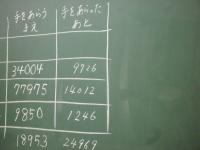 手をあらう 手をあらった
まえ あと
34004 9726
77975 14012
9850 1246
18953 24969